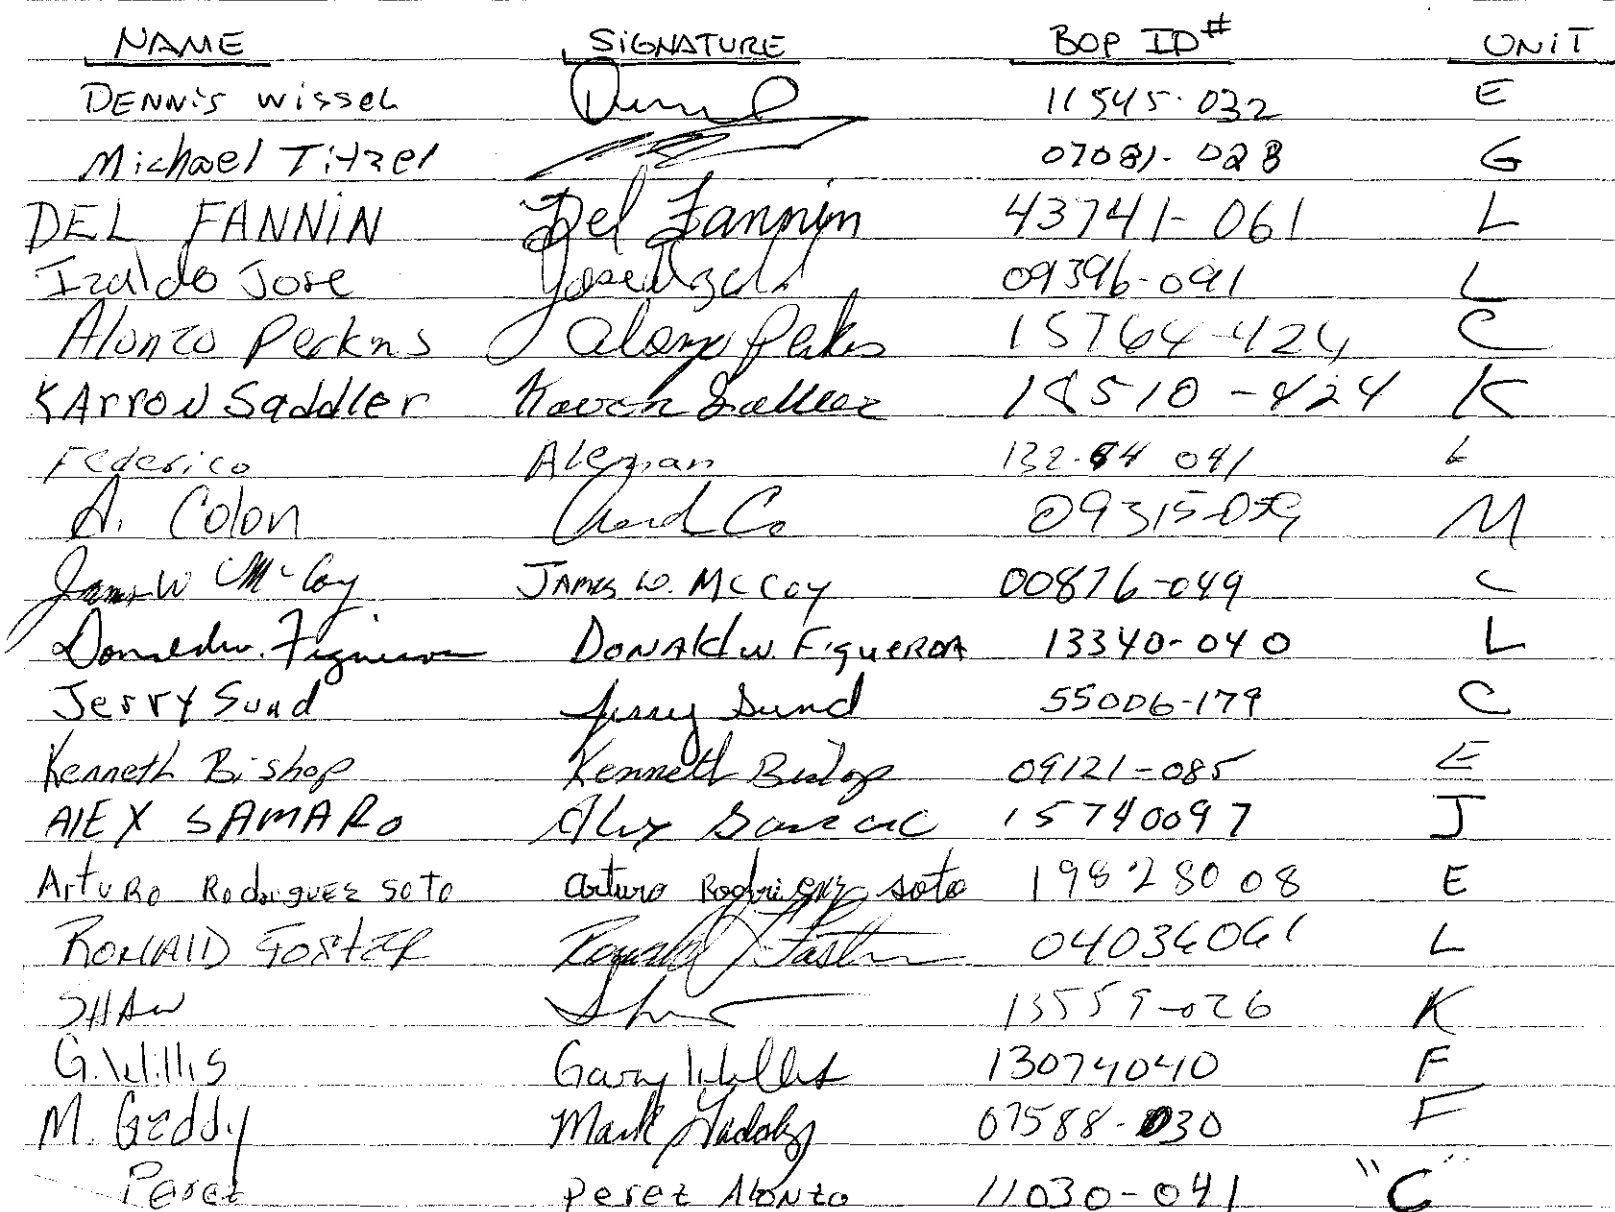 NAME SIGNATURE BOP ID# UNIT
DENNIS WISSEL 11545-032 E
Michael Titzel 07081-028 G
DEL FANNIN Del Fannin 43741-061 L
Izaldo Jose Jose Izaldo 09396-091 L
Alonzo Perkins Alonzo Perkins 15764-424 C
KArroN Saddler Karron Saddler 18510-424 K
Federico Aleman 132-84 041 L
A. Colon 09315-059 M
James W McCoy JAMES W. McCoy 00876-049 C
Donald w. Figueroa DONAld w. FiguEROA 13340-040 L
Jerry Sund Jerry Sund 55006-179 C
Kenneth Bishop Kenneth Bishop 09121-085 E
AlEX SAMARO Alex 15740097 J
ArtuRo RodriguEz Soto arturo Rodriguez soto 198 28008 E
RONAlD FOSTER Ronald J Foster 04036061 L
SHAW 13559-026 K
G. Willis Gary Willis 13074040 F
M. Gaddy Mark Gaddy 07588-030 F
Perez Perez AloNzo 11030-041 "C"